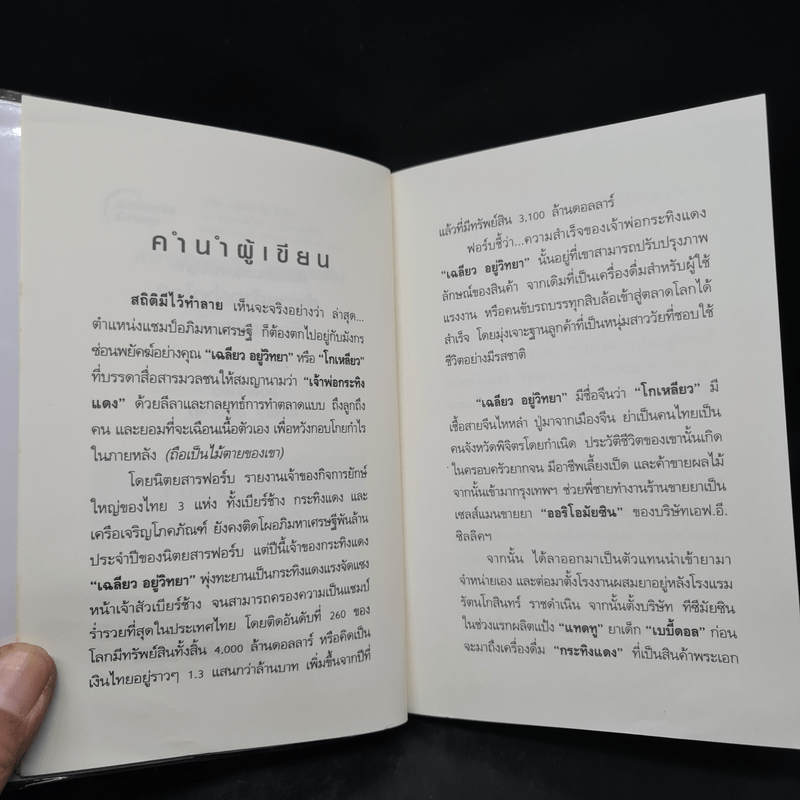 คำนำผู้เขียน
สถิติมีไว้ทำลาย เห็นจะจริงอย่างว่า ล่าสุด...
ตำแหน่งแชมป์อภิมหาเศรษฐี ก็ต้องตกไปอยู่กับมังกร
ซ่อนพยัคฆ์อย่างคุณ "เฉลียว อยู่วิทยา" หรือ "โกเหลียว"
ที่บรรดาสื่อสารมวลชนให้สมญานามว่า "เจ้าพ่อกระทิง
แดง" ด้วยลีลาและกลยุทธ์การทำตลาดแบบ ถึงลูกถึง
คน และยอมที่จะเฉือนเนื้อตัวเอง เพื่อหวังกอบโกยกำไร
ในภายหลัง (ถือเป็นไม้ตายของเขา)
โดยนิตยสารฟอร์บ รายงานเจ้าของกิจการยักษ์
ใหญ่ของไทย 3 แห่ง ทั้งเบียร์ช้าง กระทิงแดง และ
เครือเจริญโภคภัณฑ์ ยังคงติดโผอภิมหาเศรษฐีพันล้าน
ประจำปีของนิตยสารฟอร์บ แต่ปีนี้เจ้าของกระทิงแดง
"เฉลียว อยู่วิทยา" พุ่งทะยานเป็นกระทิงแดงแรงจัดแซง
หน้าเจ้าสัวเบียร์ช้าง จนสามารถครองความเป็นแชมป์
ร่ำรวยที่สุดในประเทศไทย โดยติดอันดับที่ 260 ของ
โลกมีทรัพย์สินทั้งสิ้น 4,000 ล้านดอลลาร์ หรือคิดเป็น
เงินไทยอยู่ราวๆ 1.3 แสนกว่าล้านบาท เพิ่มขึ้นจากปีที่
แล้วที่มีทรัพย์สิน 3,100 ล้านดอลลาร์
ฟอร์บชี้ว่า...ความสำเร็จของเจ้าพ่อกระทิงแดง
"เฉลียว อยู่วิทยา" นั้นอยู่ที่เขาสามารถปรับปรุงภาพ
ลักษณ์ของสินค้า จากเดิมที่เป็นเครื่องดื่มสำหรับผู้ใช้
แรงงาน หรือคนขับรถบรรทุกสิบล้อเข้าสู่ตลาดโลกได้
สำเร็จ โดยมุ่งเจาะฐานลูกค้าที่เป็นหนุ่มสาววัยที่ชอบใช้
ชีวิตอย่างมีรสชาติ
"เฉลียว อยู่วิทยา" มีชื่อจีนว่า "โกเหลียว" มี
เชื้อสายจีนไหหลำ ปู่มาจากเมืองจีน ย่าเป็นคนไทยเป็น
คนจังหวัดพิจิตรโดยกำเนิด ประวัติชีวิตของเขานั้นเกิด
ในครอบครัวยากจน มีอาชีพเลี้ยงเป็ด และค้าขายผลไม้
จากนั้นเข้ามากรุงเทพฯ ช่วยพี่ชายทำงานร้านขายยาเป็น
เซลส์แมนขายยา "ออริโอมัยซิน" ของบริษัทเอฟ.อี.
ซิลลิคฯ
จากนั้น ได้ลาออกมาเป็นตัวแทนนำเข้ายามา
จำหน่ายเอง และต่อมาตั้งโรงงานผสมยาอยู่หลังโรงแรม
รัตนโกสินทร์ ราชดำเนิน จากนั้นตั้งบริษัท ทีซีมัยซิน
ในช่วงแรกผลิตแป้ง "แทตทู" ยาเด็ก "เบบี้ดอล" ก่อน
จะมาถึงเครื่องดื่ม "กระทิงแดง" ที่เป็นสินค้าพระเอก